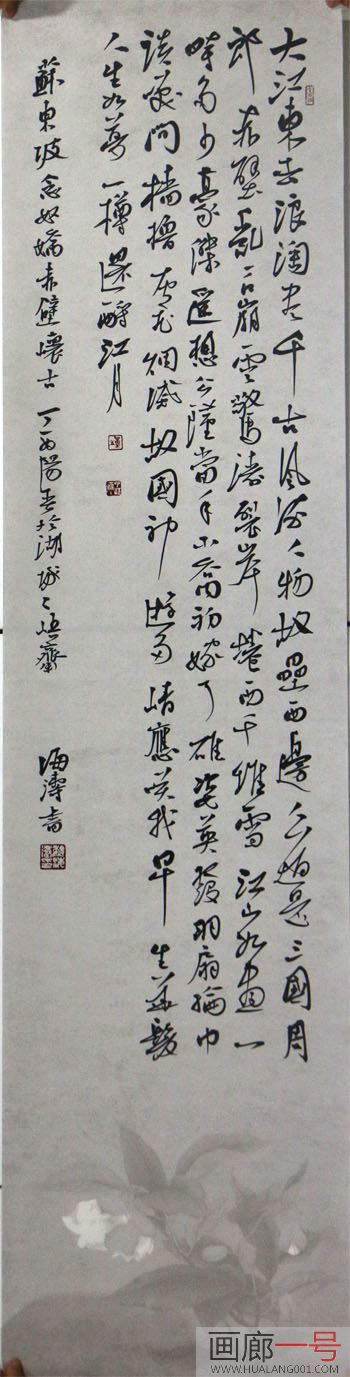 大江東去浪淘盡千古風流人物故壘西邊人道是三國周
郎赤壁亂石崩雲驚濤裂岸捲起千堆雪江山如畫一
時多少豪傑遙想公瑾當年小喬初嫁了雄姿英發羽扇綸巾
談笑間檣櫓灰飛烟滅故國神遊多情應笑我早生華髮
人生如夢一樽還酹江月
蘇東坡念奴嬌赤壁懷古 丁酉陽春於湖城之齋 海濤書
画廊一号
WWW.HUALANG001.COM